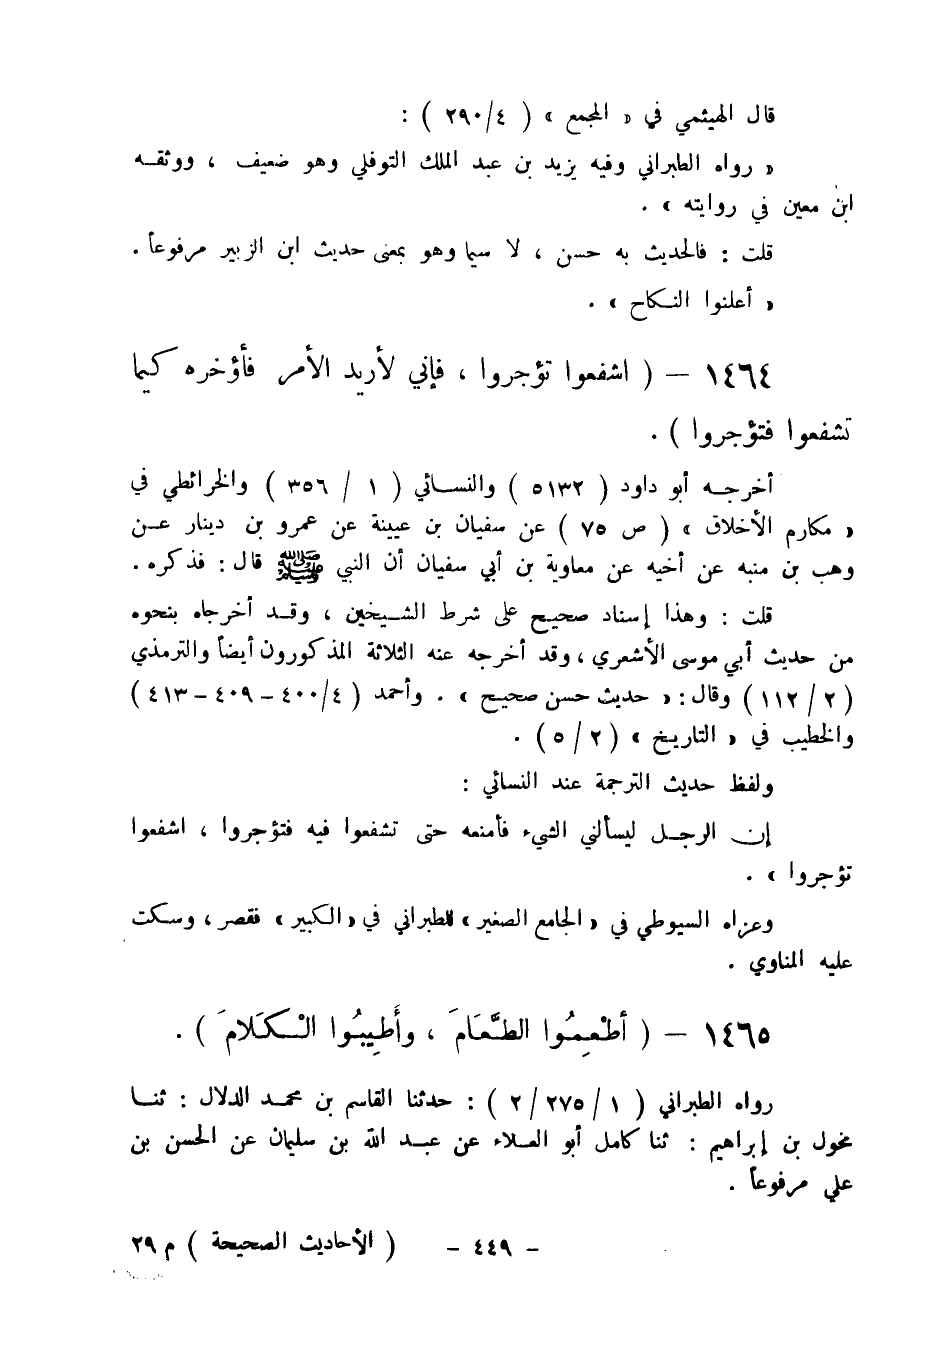 قال الهيثمي في « المجمع » ( ٤/ ٢٩٠ ) :
« رواه الطبراني وفيه يزيد بن عبد الملك النوفلي وهو ضعيف ، ووثقـه
ابن معين في روايته » .
قلت : فالحديث به حسن ، لا سيما وهو بمعنى حديث ابن الزبير مرفوعاً .
« أعلنوا النكاح » .
١٤٦٤ – ( اشفعوا تؤجروا ، فإني لأريد الأمر فأؤخره كيما
تشفعوا فتؤجروا ) .
أخرجـه أبو داود ( ٥١٣٢ ) والنسائي ( ١ / ٣٥٦ ) والخرائطي في
« مكارم الأخلاق » ( ص ٧٥ ) عن سفيان بن عيينة عن عمرو بن دينار عـن
وهب بن منبه عن أخيه عن معاوية بن أبي سفيان أن النبي ﷺ قال : فذكره .
قلت : وهذا إسناد صحيح على شرط الشيخين ، وقـد أخرجاه بنحوه
من حديث أبي موسى الأشعري ، وقد أخرجه عنه الثلاثة المذكورون أيضاً والترمذي
( ٢ / ١١٢ ) وقال : « حديث حسن صحيح » . وأحمد ( ٤/ ٤٠٠ – ٤٠٩ – ٤١٣ )
والخطيب في « التاريخ » ( ٢ / ٥ ) .
ولفظ حديث الترجمة عند النسائي :
إن الرجـل ليسألني الشيء فأمنعه حتى تشفعوا فيه فتؤجروا ، اشفعوا
تؤجروا » .
وعزاه السيوطي في « الجامع الصغير » للطبراني في « الكبير » فقصر ، وسكت
عليه المناوي .
١٤٦٥ – ( أَطْعِمُوا الطَّعَامَ ، وأَطِيبُوا الْكَلامَ ) .
رواه الطبراني ( ١ / ٢٧٥ / ٢ ) : حدثنا القاسم بن محمـد الدلال : ثنـا
مخول بن إبراهيم : ثنا كامل أبو العـلاء عن عبـد الله بن سليمان عن الحسن بن
علي مرفوعاً .
– ٤٤٩ – ( الأحاديث الصحيحة ) م ٢٩